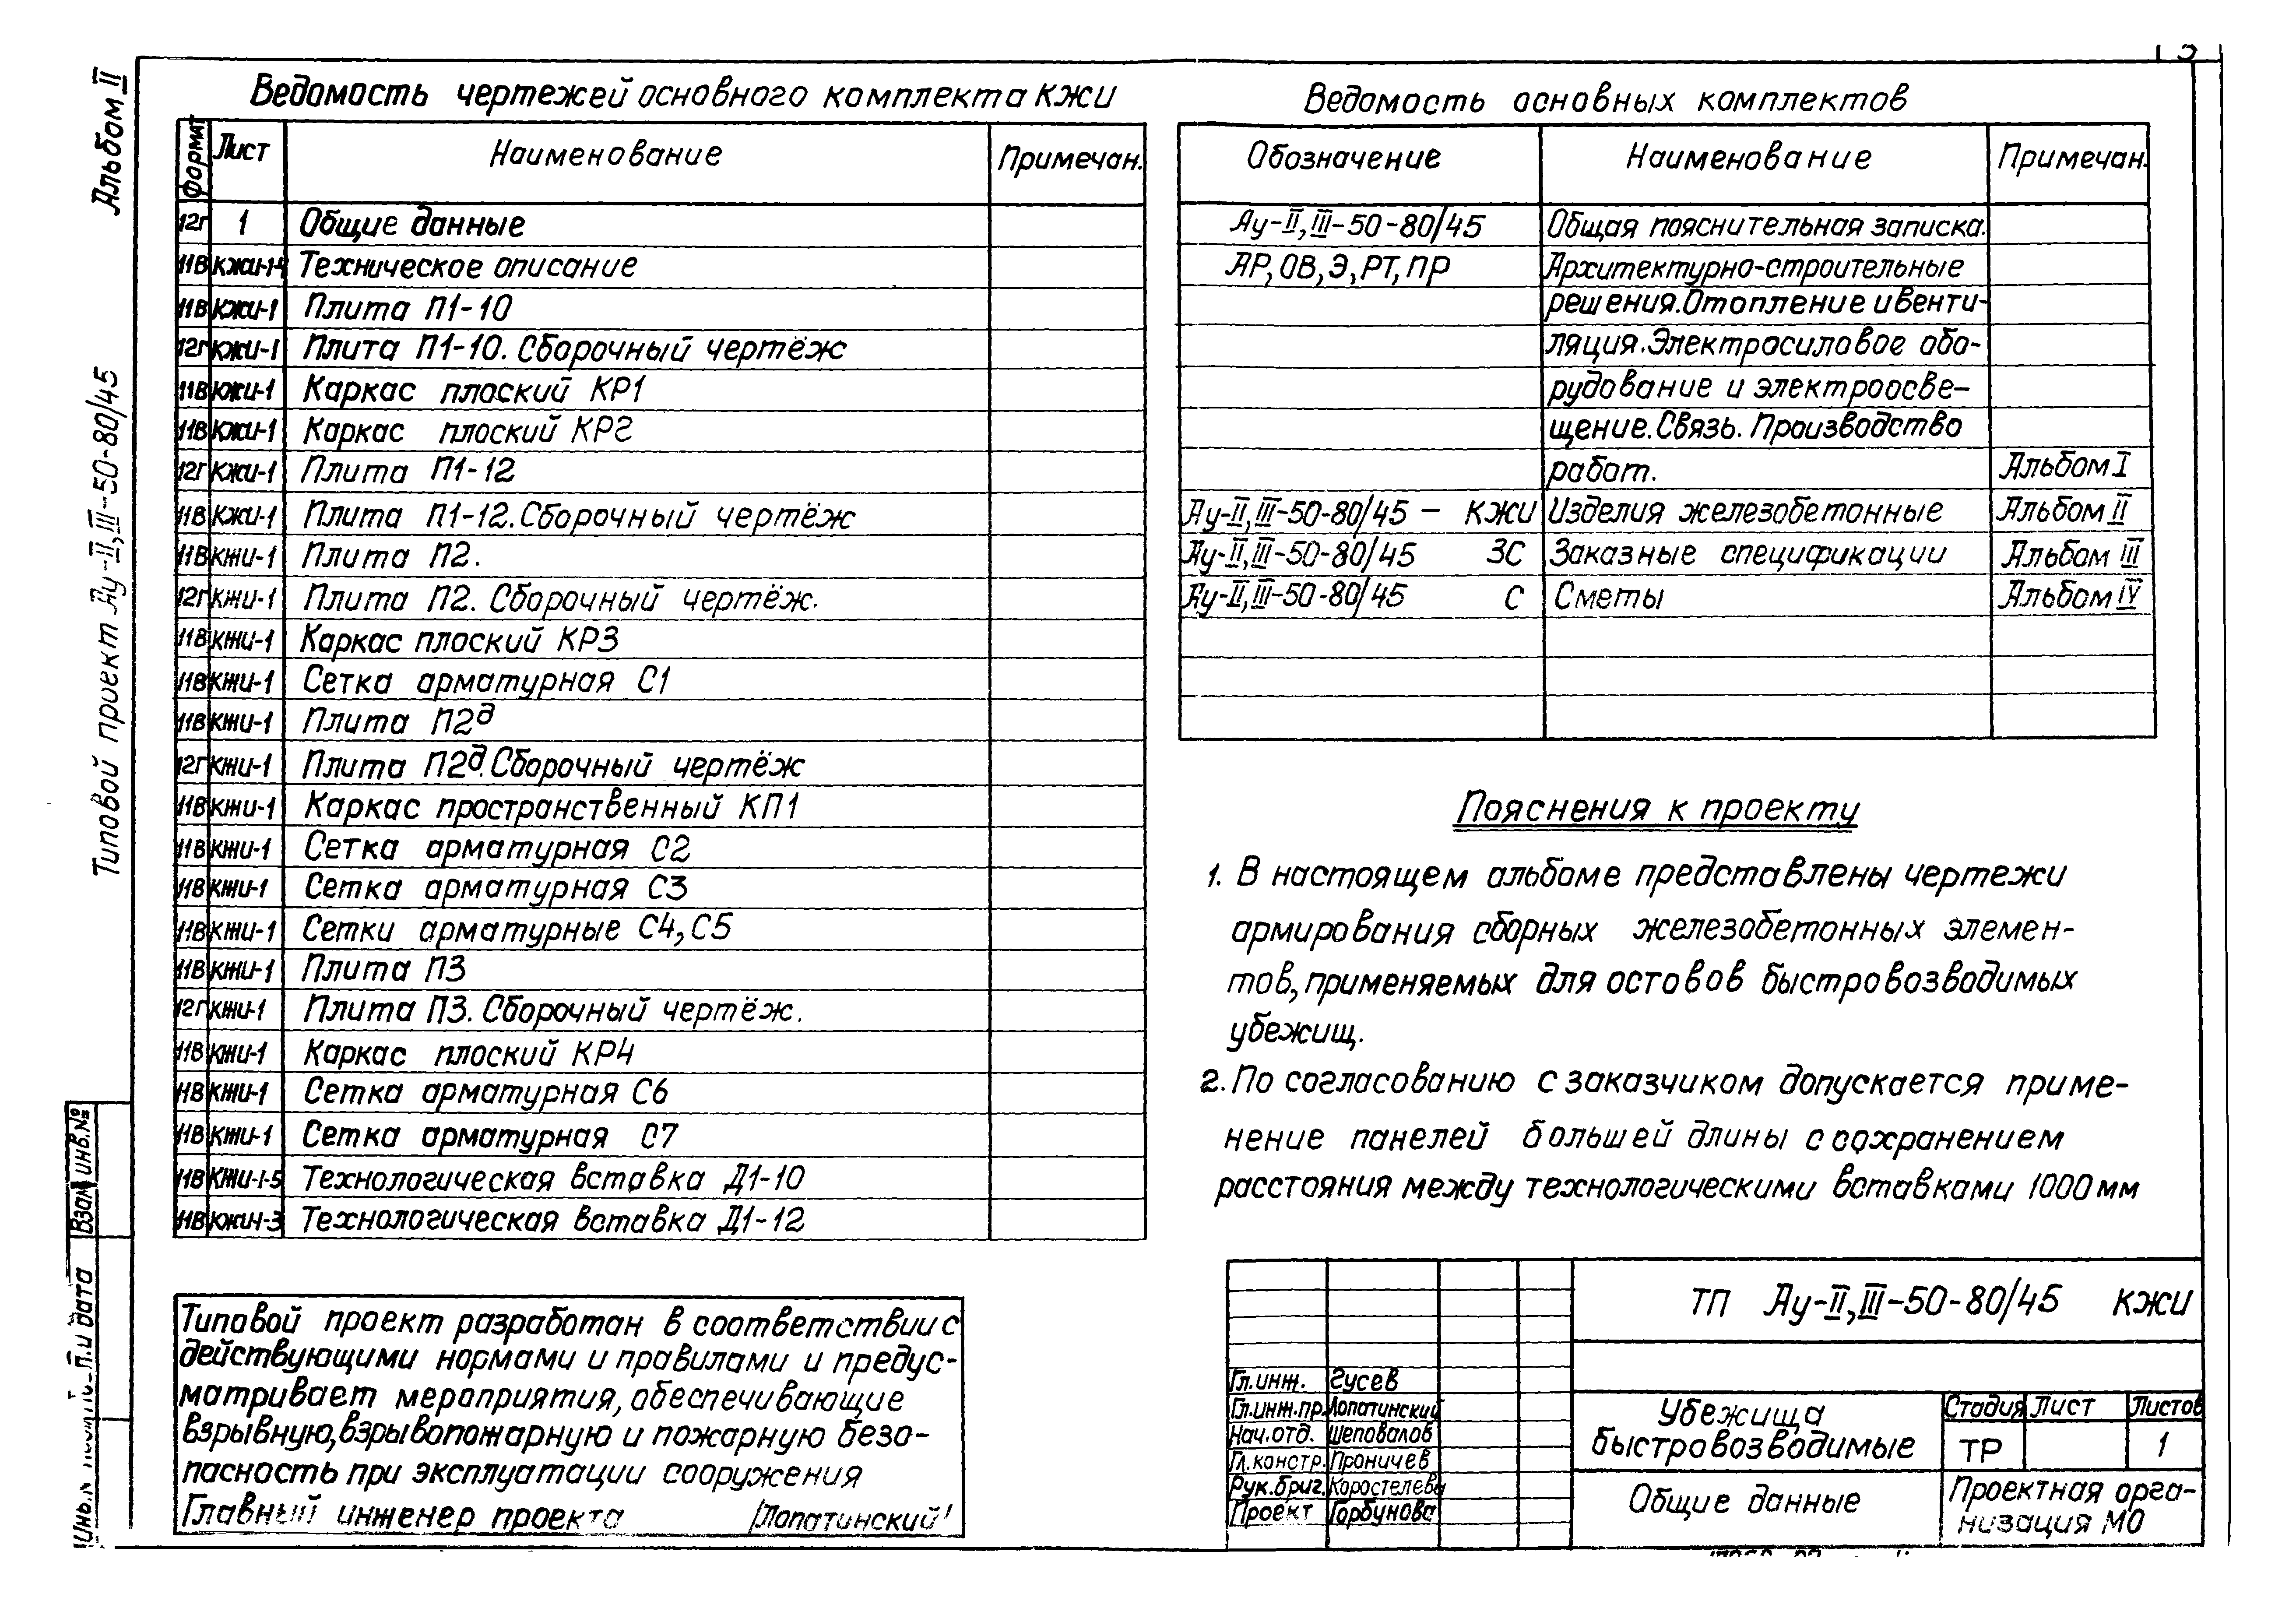 Альбом II
Типовой проект Ау-II,III-50-80/45
Ведомость чертежей основного комплекта КЖИ
Формат Лист Наименование Примечан.
12г 1 Общие данные
11В КЖИ-1-4 Техническое описание
11В КЖИ-1 Плита П1-10
12г КЖИ-1 Плита П1-10. Сборочный чертёж
11В КЖИ-1 Каркас плоский КР1
11В КЖИ-1 Каркас плоский КР2
12г КЖИ-1 Плита П1-12
11В КЖИ-1 Плита П1-12. Сборочный чертёж
11В КЖИ-1 Плита П2.
12г КЖИ-1 Плита П2. Сборочный чертёж.
11В КЖИ-1 Каркас плоский КР3
11В КЖИ-1 Сетка арматурная С1
11В КЖИ-1 Плита П2д
12г КЖИ-1 Плита П2д. Сборочный чертёж
11В КЖИ-1 Каркас пространственный КП1
11В КЖИ-1 Сетка арматурная С2
11В КЖИ-1 Сетка арматурная С3
11В КЖИ-1 Сетки арматурные С4, С5
11В КЖИ-1 Плита П3
12г КЖИ-1 Плита П3. Сборочный чертёж.
11В КЖИ-1 Каркас плоский КР4
11В КЖИ-1 Сетка арматурная С6
11В КЖИ-1 Сетка арматурная С7
11В КЖИ-1-5 Технологическая вставка Д1-10
11В Технологическая вставка Д1-12
Ведомость основных комплектов
Обозначение Наименование Примечан.
Ау-II,III-50-80/45 Общая пояснительная записка.
АР, ОВ, Э, РТ, ПР Архитектурно-строительные
решения. Отопление и венти-
ляция. Электросиловое обо-
рудование и электроосве-
щение. Связь. Производство
работ. Альбом I
Ау-II,III-50-80/45 - КЖИ Изделия железобетонные Альбом II
Ау-II,III-50-80/45 ЗС Заказные спецификации Альбом III
Ау-II,III-50-80/45 С Сметы Альбом IV
Пояснения к проекту
1. В настоящем альбоме представлены чертежи
армирования сборных железобетонных элемен-
тов, применяемых для остовов быстровозводимых
убежищ.
2. По согласованию с заказчиком допускается приме-
нение панелей большей длины с сохранением
расстояния между технологическими вставками 1000 мм
Типовой проект разработан в соответствии с
действующими нормами и правилами и предус-
матривает мероприятия, обеспечивающие
взрывную, взрывопожарную и пожарную безо-
пасность при эксплуатации сооружения
Главный инженер проекта /Лопатинский/
Взам инв.№
ТП Ау-II,III-50-80/45 КЖИ
Гл.инж. Гусев
Гл.инж.пр. Лопатинский
Нач.отд. Шеповалов
Гл.констр. Проничев
Рук.бриг. Коростелева
Проект Горбунова
Убежища
быстровозводимые
Стадия Лист Листов
ТР 1
Общие данные
Проектная орга-
низация МО